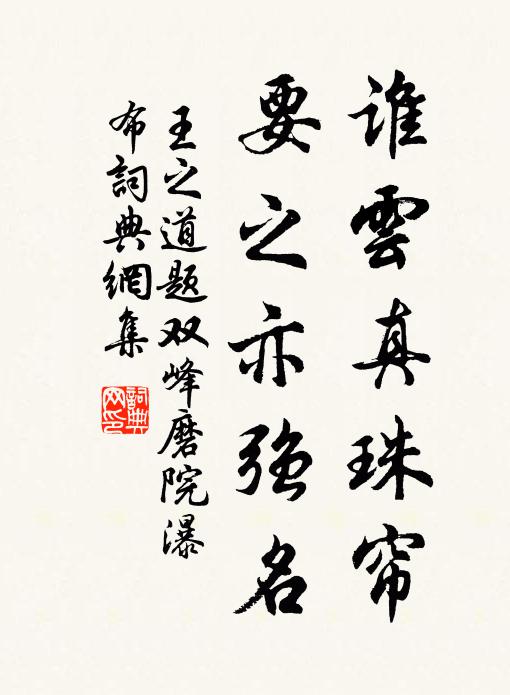 谁雲真珠帘
要之亦强名
王之道题双峰磨院瀑
布詞典網集
詞典网印